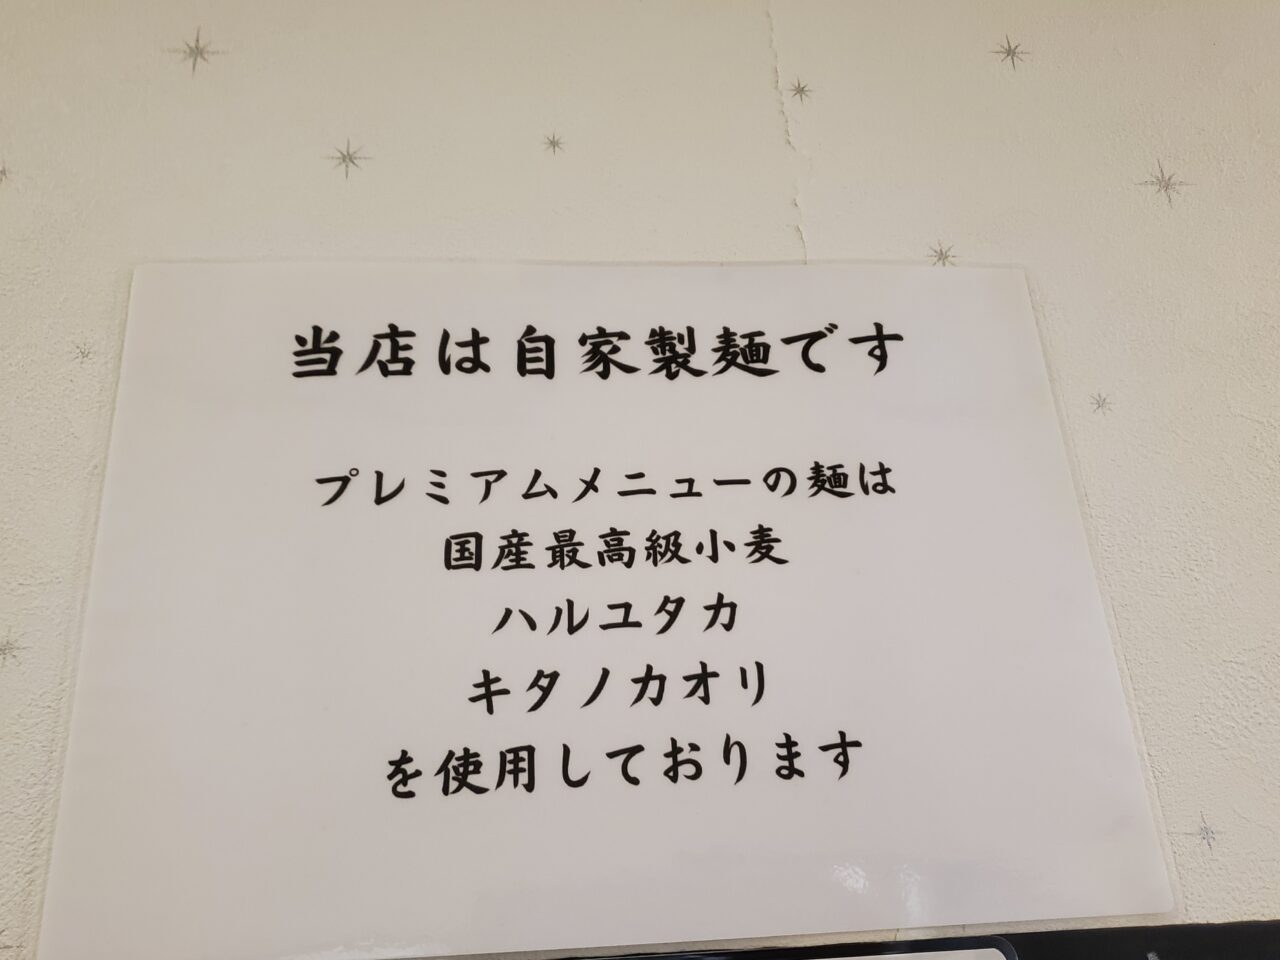 当店は自家製麺です
プレミアムメニューの麺は
国産最高級小麦
ハルユタカ
キタノカオリ
を使用しております